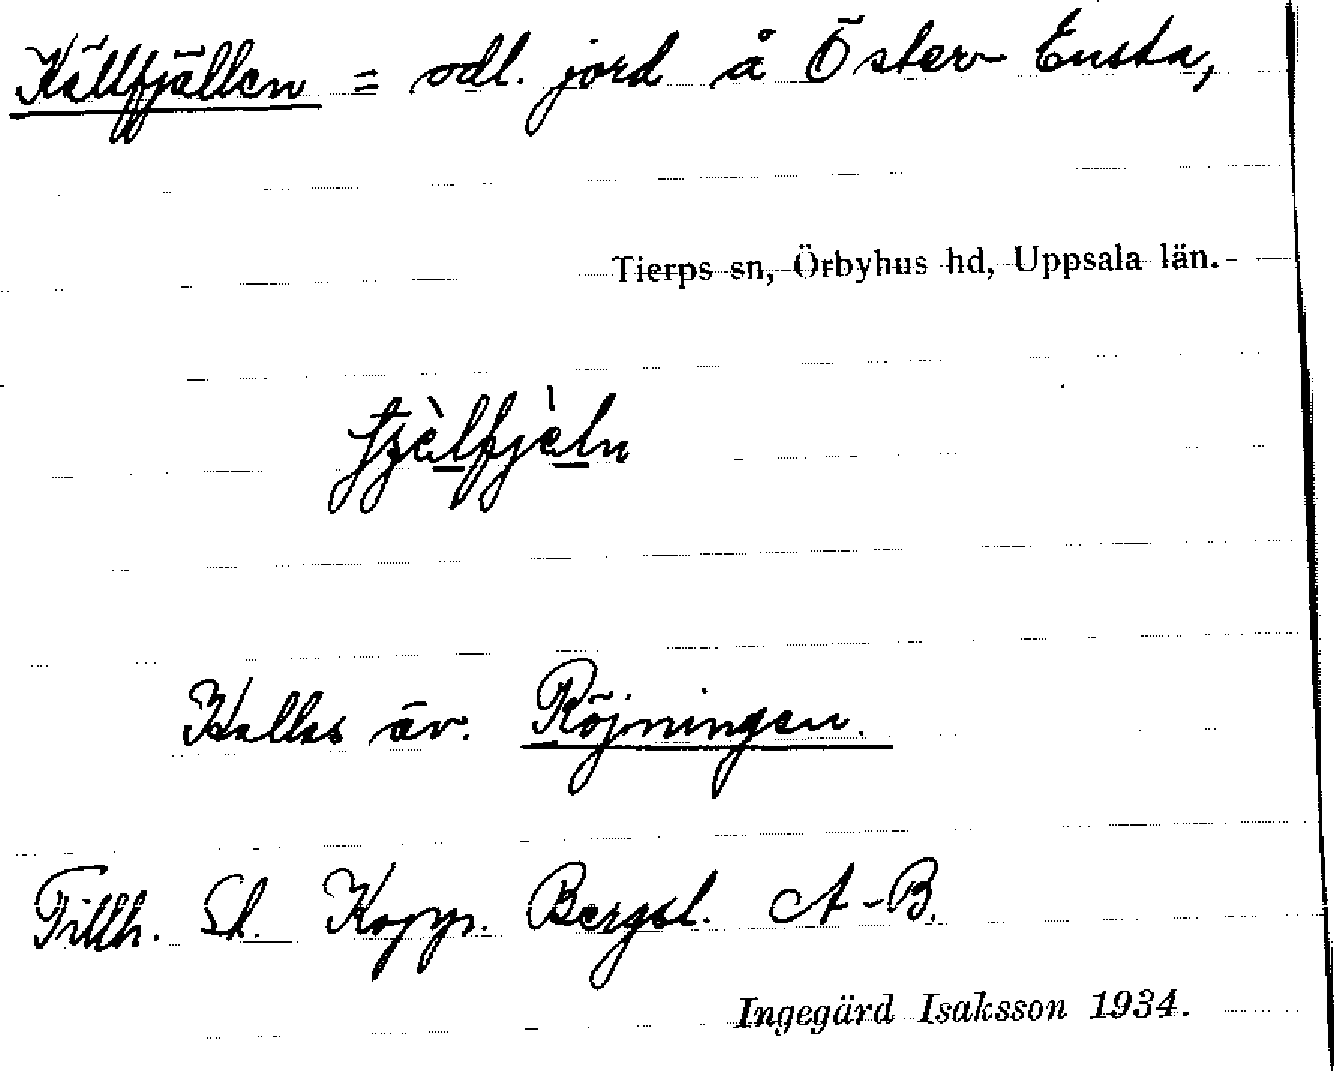 Källfjällen = odl. jord å Öster Ensta,
Tierps sn, Örbyhus hd, Uppsala län.
Kallas äv. Röjningen.
Tillh. St. Kopp. Bergsl. A-B.
Ingegärd Isaksson 1934.